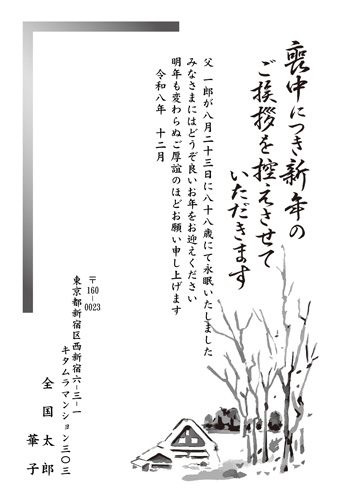 喪中につき新年の
ご挨拶を控えさせて
いただきます
父 一郎が八月二十三日に八十八歳にて永眠いたしました
みなさまにはどうぞ良いお年をお迎えください
明年も変わらぬご厚誼のほどお願い申し上げます
令和八年 十二月
〒160-0023
東京都新宿区西新宿六-三-一
キタムラマンション三〇三
全国 太郎
華子